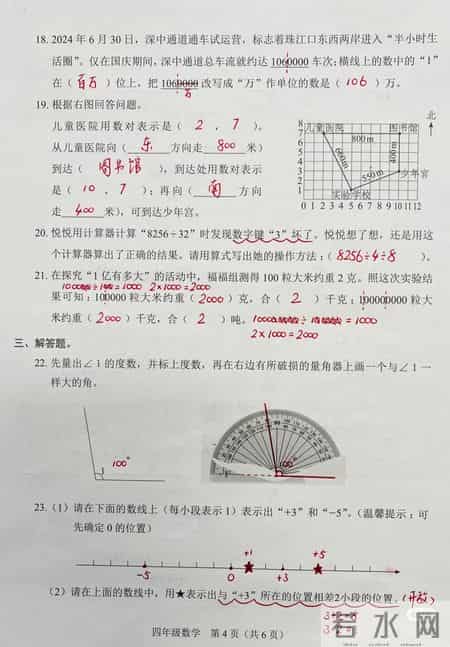 18. 2024 年 6 月 30 日，深中通道通车试运营，标志着珠江口东西两岸进入“半小时生
活圈”。仅在国庆期间，深中通道总车流就约达 1060000 车次；横线上的数中的“1”
在（ 百万 ）位上，把 1060000 改写成“万”作单位的数是（ 106 ）万。
万
19. 根据右图回答问题。
儿童医院用数对表示是（ 2，7 ），
从儿童医院向（ 东 ）方向走 800 米）
到达（ 图书馆 ），到达处用数对表示
是（ 10，7 ）；再向（ 南 ）方向
走 400 米），可到达少年宫。
北
8
7
6
5
4
3
2
1
儿童医院
图书馆
800m
660m
400m
550m
少年宫
实验学校
0 1 2 3 4 5 6 7 8 9 10 11 12
20. 悦悦用计算器计算“8256÷32”时发现数字键“3”坏了。悦悦想了想，还是用这
个计算器算出了正确的结果。请用算式写出她的操作方法：（ 8256÷4÷8 ）。
21. 在探究“1 亿有多大”的活动中，福福组测得 100 粒大米约重 2 克。照这次实验结
100000÷100=1000 2×1000=2000
果可知：100000 粒大米约重（ 2000 ）克，合（ 2 ）千克；100000000 粒大
米约重（ 2000 ）千克，合（ 2 ）吨。 100000000÷100000=1000
2×1000=2000
三、解答题。
22. 先量出∠1 的度数，并标上度数，再在右边有所破损的量角器上画一个与∠1 一
样大的角。
1
100°
100°
23.（1）请在下面的数线上（每小段表示 1）表示出“+3”和“-5”。（温馨提示：可
先确定 0 的位置）
+1
+5
-5
0
+3
（2）请在上面的数线中，用★表示出与“+3”所在的位置相差2小段的位置。（开放）
四年级数学 第 4 页（共 6 页）
若水网